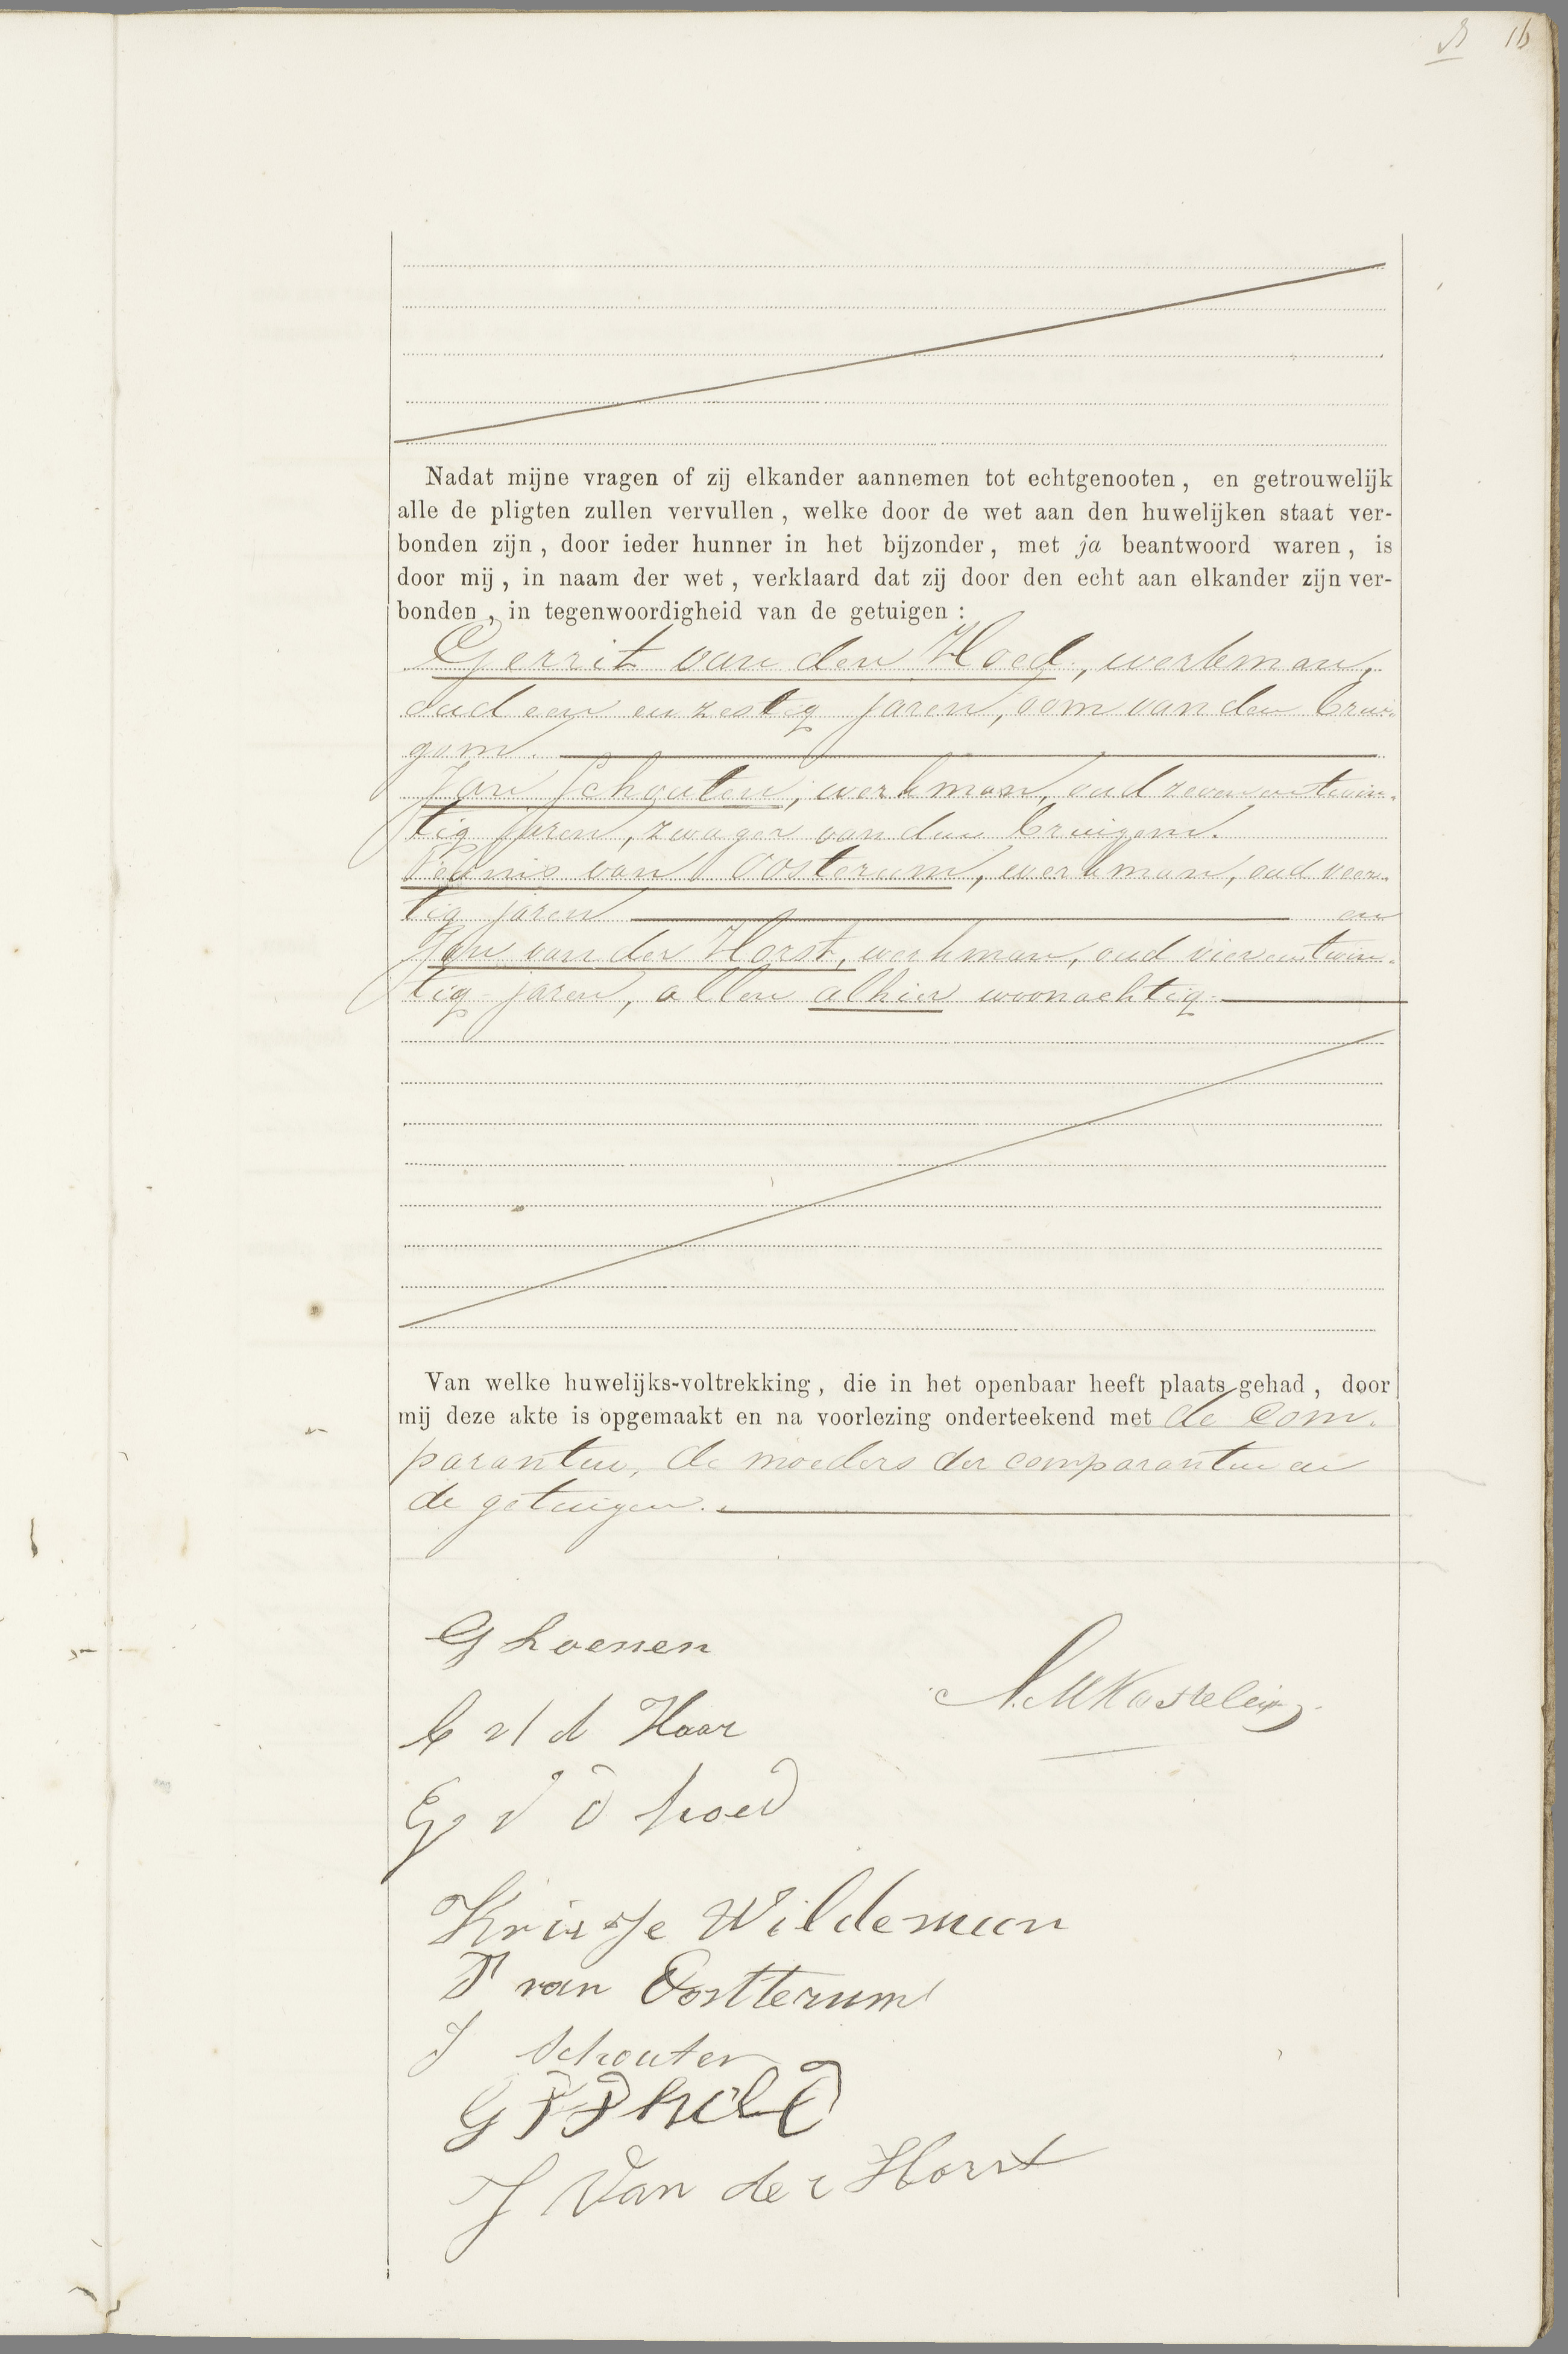 16
Nadat mijne vragen of zij elkander aannemen tot echtgenooten, en getrouwelijk
alle de pligten zullen vervullen, welke door de wet aan den huwelijken staat ver-
bonden zijn, door ieder hunner in het bijzonder, met ja beantwoord waren, is
door mij, in naam der wet, verklaard dat zij door den echt aan elkander zijn ver-
bonden, in tegenwoordigheid van de getuigen:
Gerrit van den Hoed, werkman,
oud een en zestig jaren, oom van den brui-
gom.
Jan Schouten, werkman, oud zevenentwin-
tig jaren, zwager van den bruigom.
Teunis van Oosterum, werkman, oud veer-
tig jaren en
Jan van der Horst, werkman, oud vierentwin-
tig jaren, allen alhier woonachtig.
Van welke huwelijks-voltrekking, die in het openbaar heeft plaats gehad, door
mij deze akte is opgemaakt en na voorlezing onderteekend met de Com-
paranten, de moeders der comparanten en
de getuigen.
G Loenen
N. M Kastelein
C v d Haar
E v d hoed
Krisje Wildeman
T van Oostterum
J Schouten
G V D
J Van der Horst